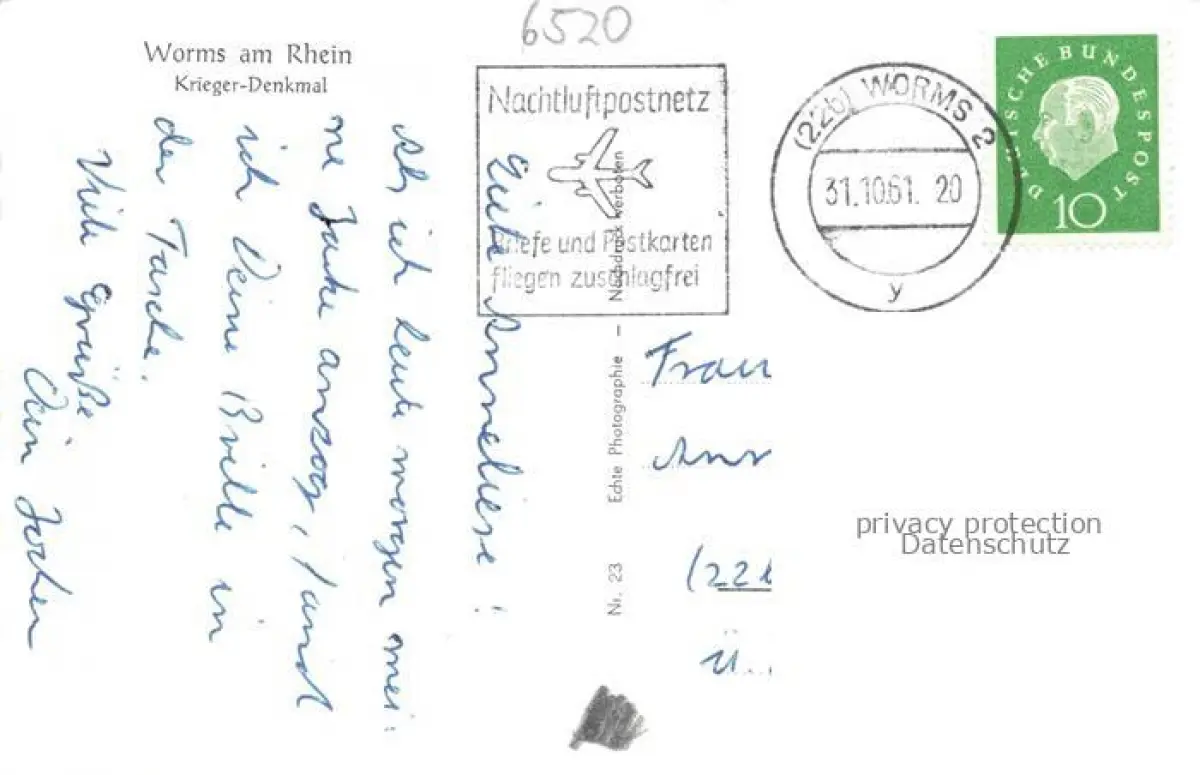 6520
Worms am Rhein
Krieger-Denkmal
Nachtluftpostnetz
Briefe und Postkarten
fliegen zuschlagfrei
(22b) WORMS 2
31.10.61. 20
y
DEUTSCHE BUNDESPOST
10
Liebe Anneliese!
Als ich heute morgen mei-
ne Jacke anzog, fand
ich Deine Brille in
der Tasche.
Viele Grüße
Dein Jochen
Nr. 23 Echte Photographie – Nachdruck verboten
Frau
Ann
(22b
Ü
privacy protection
Datenschutz